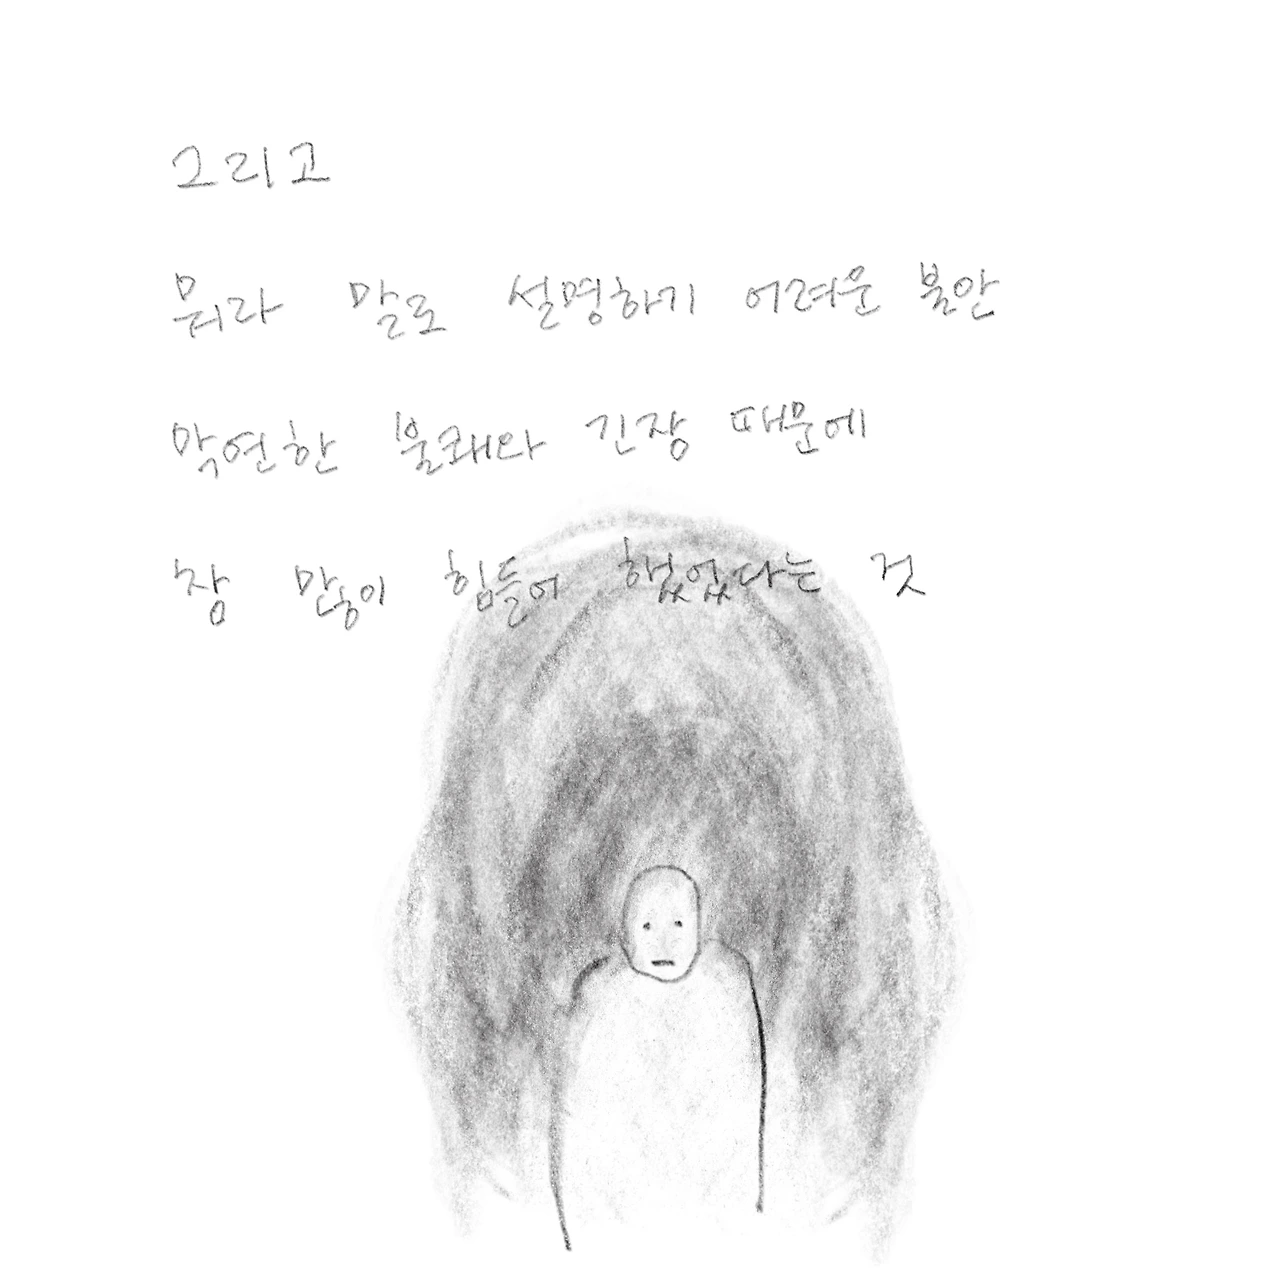 그리고
뭐라 말로 설명하기 어려운 불안
막연한 불쾌와 긴장 때문에
참 많이 힘들어 했었다는 것